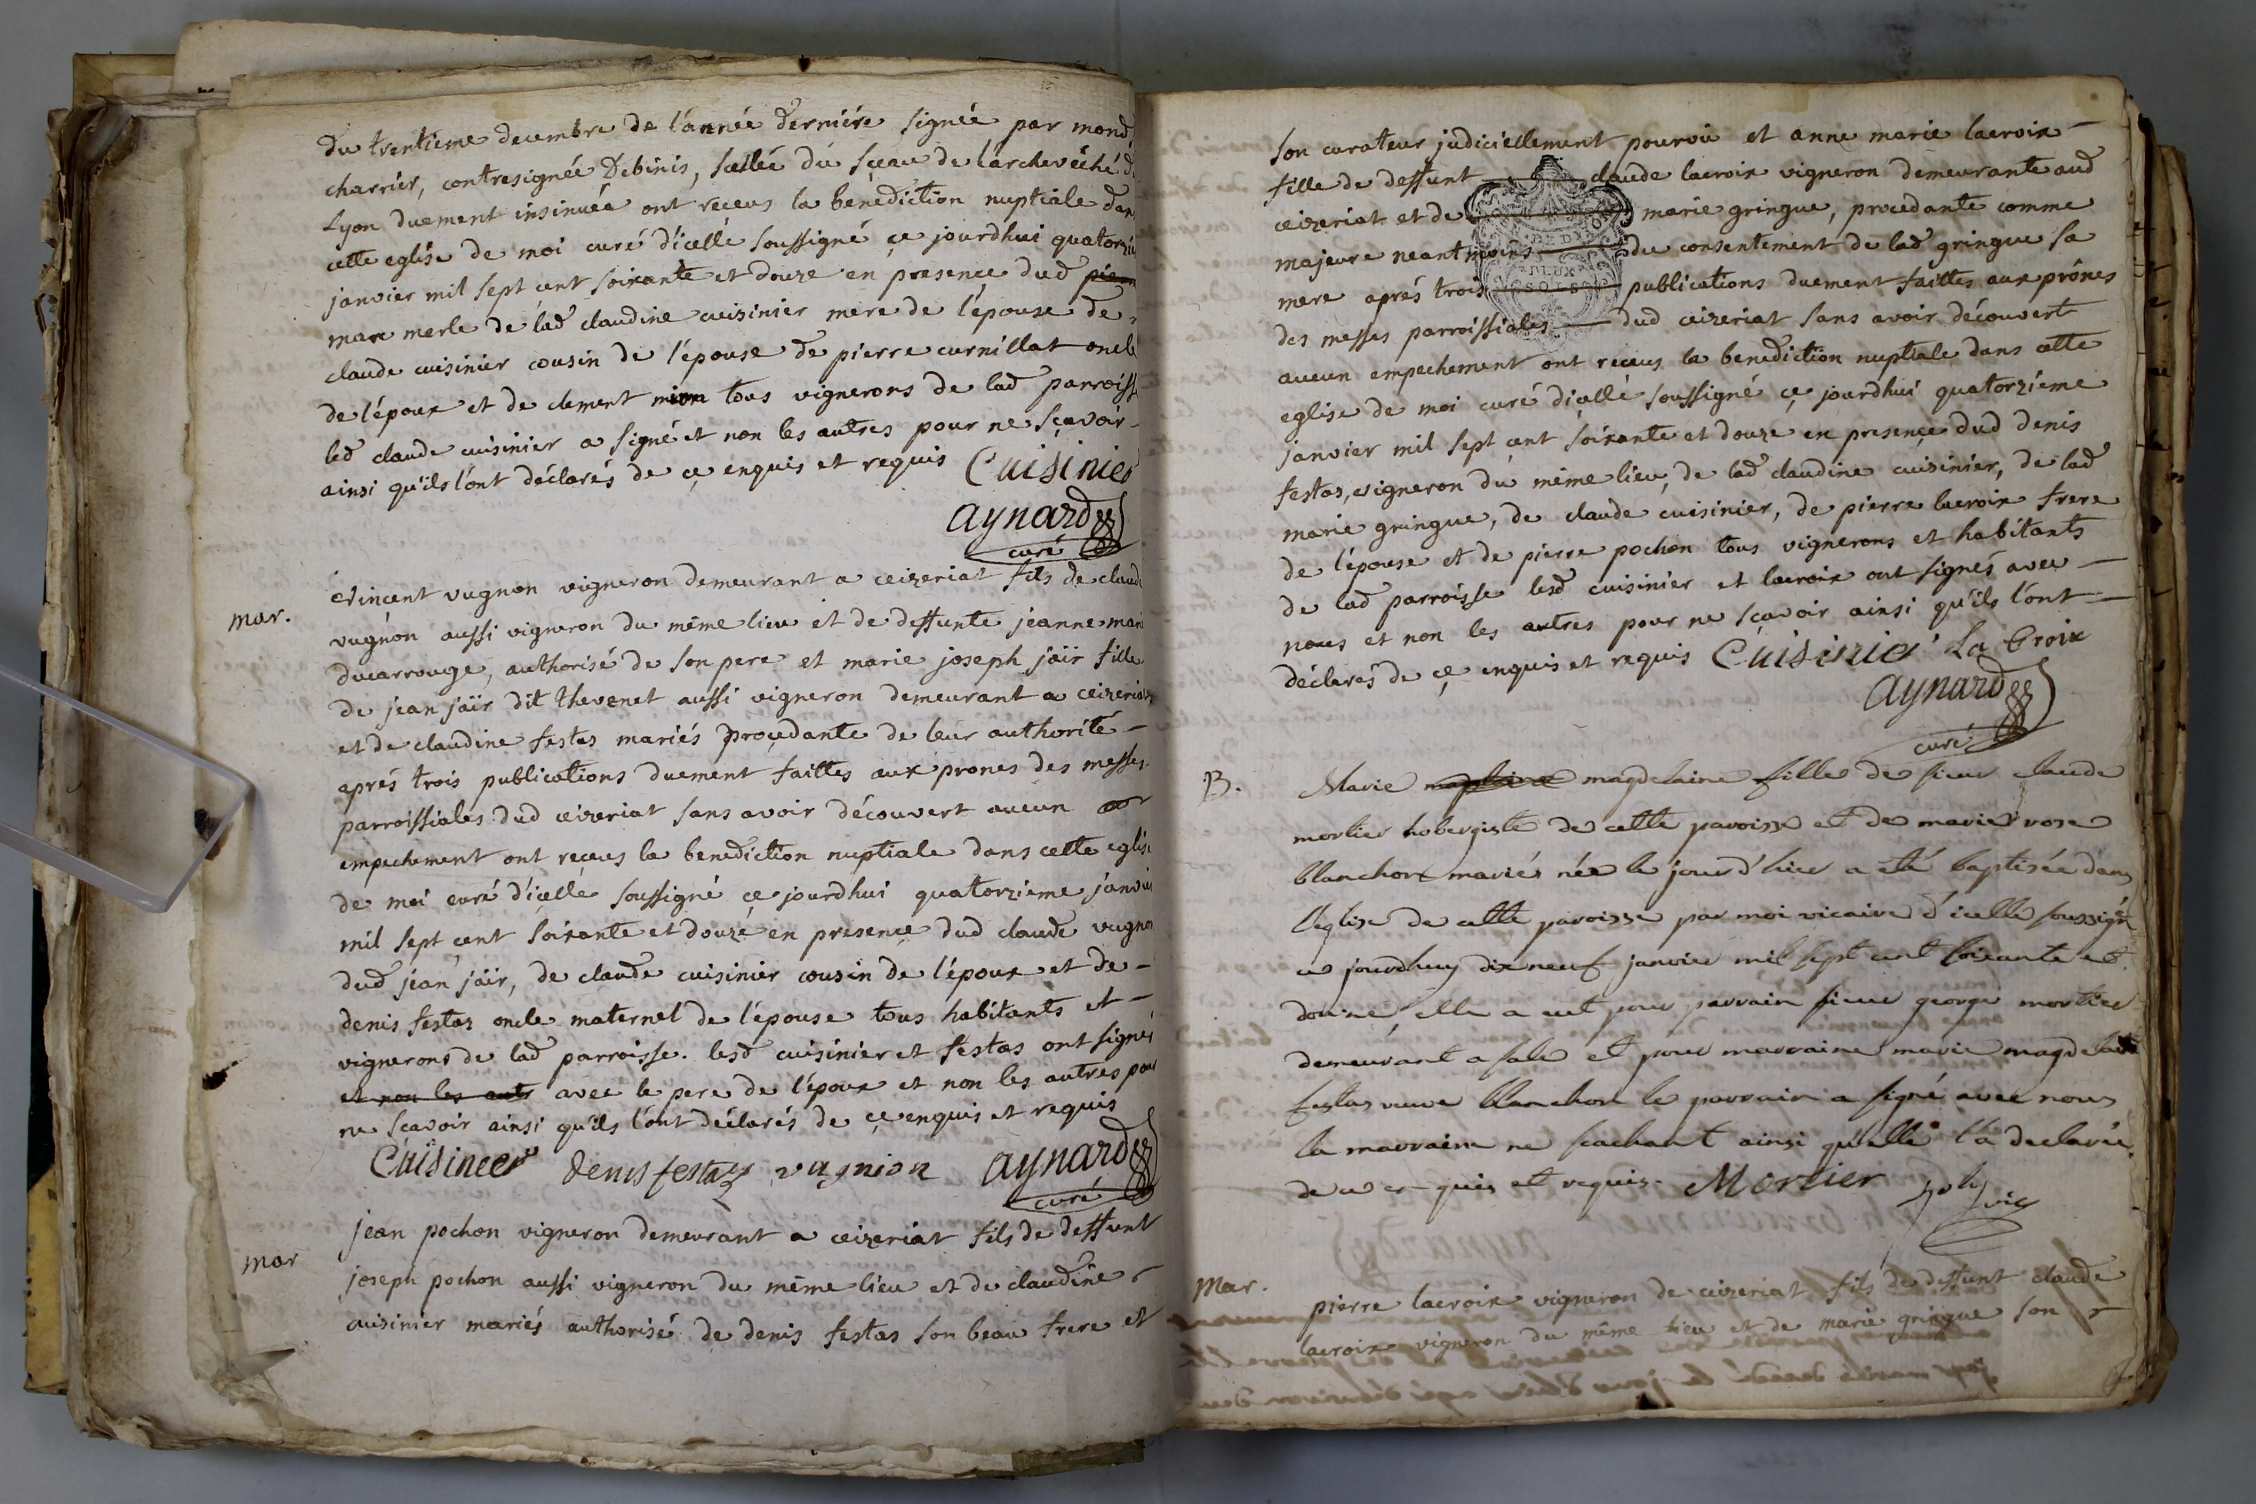 du trentieme decembre de l'année derniére signée par mond
charrier, contresignée Debinis, scellée du sceau de l'archevêché d
Lyon duement insinuée ont receus la benediction nuptiale dans
cette eglise de moi curé d'icelle soussigné çe jourdhui quatorzie
janvier mil sept cent soixante et douze en presençe dud pierre
marc merle de lad claudine cuisinier mere de l'épouse de
claude cuisinier cousin de l'épouse de pierre curnillat oncle
de l'époux et de clement mion tous vignerons de lad parroisse
led claude cuisinier a signé et non les autres pour ne sçavoir
ainsi qu'ils l'ont déclarés de çe enquis et requis Cuisinier
aynard
curé
mar.
vincent vugnon vigneron demeurant a ceizeriat fils de claude
vugnon aussi vigneron du même lieu et de deffunte jeanne mari
ducarrouge, authorisé de son pere et marie joseph jäir fille
de jean jäir dit thevenet aussi vigneron demeurant a ceizeriat
et de claudine festas mariés proçedante de leur authorité
aprés trois publications duement faittes aux prones des messes
parroissiales dud ceizeriat sans avoir découvert aucun
empechement ont receus la benediction nuptiale dans cette eglise
de moi curé d'içelle soussigné çe jourdhui quatorzieme janvier
mil sept çent soixante et douze en presençe dud claude vugnon
dud jean jäir, de claude cuisinier cousin de l'époux et de
denis festas oncle maternel de l'épouse tous habitants et
vignerons de lad parroisse. lesd cuisinier et festas ont signés
et non les auts avec le pere de l'époux et non les autres pour
ne scavoir ainsi qu'ils l'ont déclarés de çe enquis et requis
Cuisinier denis festaz vugnion aynard
curé
mar
jean pochon vigneron demeurant a ceizeriat fils de deffunt
joseph pochon aussi vigneron du même lieu et de claudine
cuisinier mariés authorisé de denis festas son beau frere et
son curateur judiciellement pourvû et anne marie lacroix
fille de deffunt claude lacroix vigneron demeurante aud
ceizeriat et de marie gringue, proçedante comme
majeure neantmoins du consentement de lad gringue sa
mere aprés trois publications duement faittes aux prônes
des messes parroissiales dud ceizeriat sans avoir découvert
aucun empechement ont receus la benediction nuptiale dans cette
eglise de moi curé d'içelle soussigné çe jourdhui quatorzieme
janvier mil sept çent soixante et douze en presençe dud denis
festas, vigneron du même lieu, de lad claudine cuisinier, de lad
marie gringue, de claude cuisinier, de pierre lacroix frere
de l'épouse et de pierre pochon tous vignerons et habitants
de lad parroisse lesd cuisinier et lacroix ont signés avec
nous et non les autres pour ne scavoir ainsi qu'ils l'ont
déclarés de çe enquis et requis Cuisinier La Croix
aynard
curé
B.
Marie magdelaine fille de sieur claude
mortier hobergiste de cette paroisse et de marie rose
blanchon mariés née le jour d'hier a eté baptisée dans
l'eglise de cette paroisse par moi vicaire d'icelle soussigné
ce jourdhuy dix neuf janvier mil sept cent soixante et
douze, elle a eut pour parrain sieur george mortier
demeurant a sale et pour marraine marie magdelaine
festas veuve blanchon le parrain a signé avec nous
la marraine ne sachant ainsi qu'elle l'a declarée
de ce enquis et requis. Mortier vic
Mar.
pierre lacroix vigneron de ceizeriat fils de deffunt claude
lacroix vigneron du même lieu et de marie gringue son